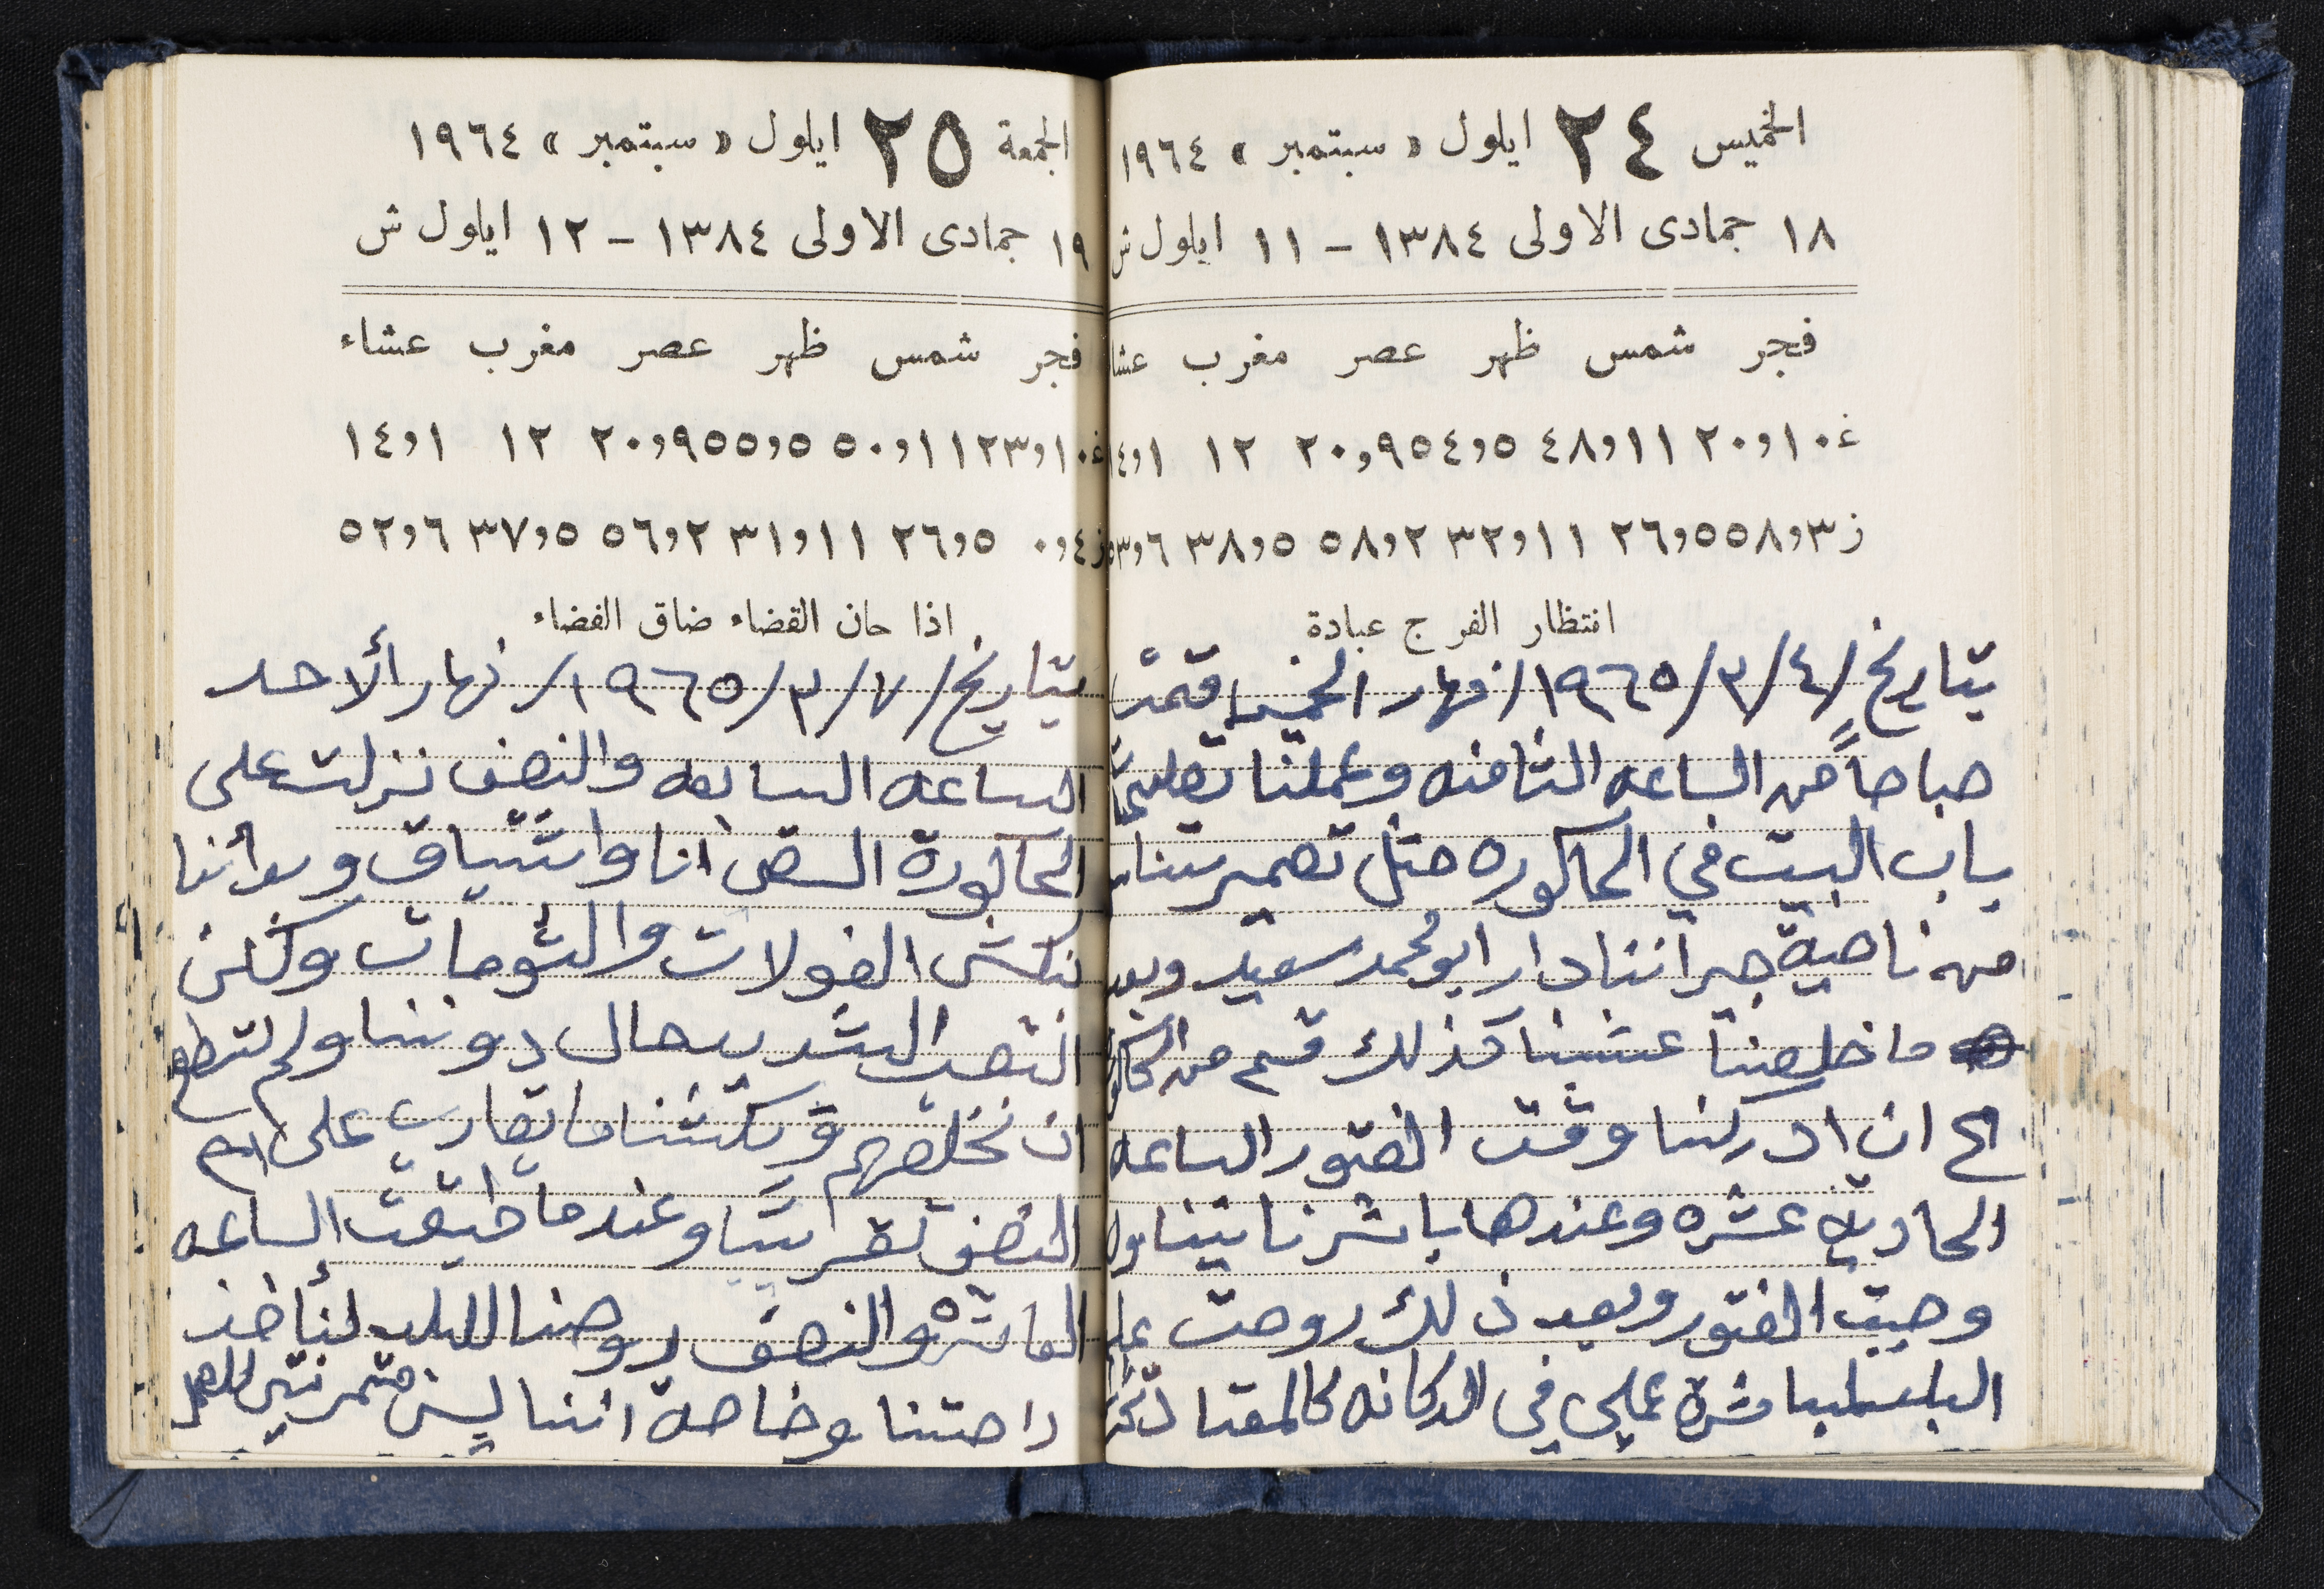 الخميس ٢٤ ايلول « سبتمبر » ١٩٦٤
١٨ جمادى الاولى ١٣٨٤ – ١١ ايلول ش
فجر شمس ظهر عصر مغرب عشا
غ ١٠و٢٠ ١١و٤٨ ٥و٥٤ ٩و٢٠ ١٢ ١و١٤
ز ٣و٥٨ ٥و٢٦ ١١و٣٢ ٢و٥٨ ٥و٣٨ ٦و٥٣
انتظار الفرج عبادة
بتاريخ /٤/٣/١٩٦٥/ نهار الخميس قمت
صباحاً من الساعه الثامنه وعملنا
باب البيت في الحاكوره مثل تصميم
من ناحية جيراننا دار ابو محمد سعيد وبعد
ما خلصنا عشبنا كذلك قسم من الحاكورة
الى ان ادركنا وقت الفتور الساعه
الحاديه عشره وعندها باشرنا بتناول
وجبة الفتور وبعد ذلك روحت على
البلد لمباشرة عملي في الدكانه كالمعتاد
الجمعة ٢٥ ايلول « سبتمبر » ١٩٦٤
١٩ جمادى الاولى ١٣٨٤ – ١٢ ايلول ش
فجر شمس ظهر عصر مغرب عشاء
غ ١٠و٢٣ ١١و٥٠ ٥و٥٥ ٩و٢٠ ١٢ ١و١٤
ز ٤و٠ ٥و٢٦ ١١و٣١ ٢و٥٦ ٥و٣٧ ٦و٥٢
اذا حان القضاء ضاق الفضاء
بتاريخ /٧/٣/١٩٦٥/ نهار الأحد
الساعه السابعه والنصف نزلت على
الحاكورة انا واشتياق وبدأنا
نكش الفولات والثومات ولكن
التعب الشديد حال دوننا ولم نستطع
ان نخلصهم ونكشنا ما يقارب على
النصف تقريبا وعندما الساعه
العاشره والنصف روحنا للبلد لنأخذ
راحتنا وخاصة اننا ليس متمرنين للعمل